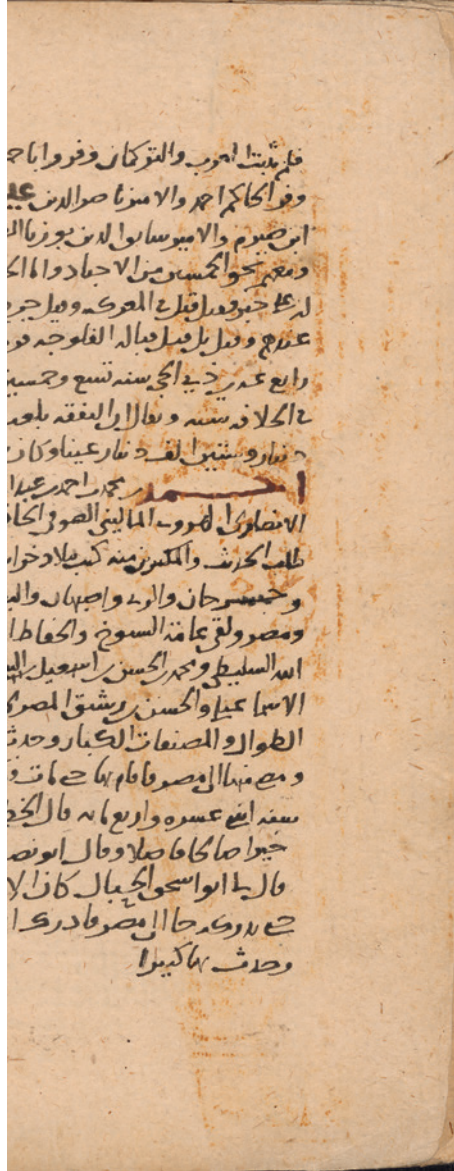 فلم تثبت العرب والتركمان وفروا باجـ
وفر الحاكم احمد والامير ناصر الدين عيـ
ابن صيرم والامير سابق الدين بوزبا الـ
ومعهم نحو الخمسين من الاجناد واما الـ
له على خبر فقيل قتل في المعركه وقيل جر
عندهم وقيل بل قتل قباله الفلوجه
رابع عشر ذي الحجه سنه تسع وخمسين
في الخلافه سنه ويقال ان النفقه بلغت
دينار وستين الف دينار عينا وكان
احمد بن محمد بن احمد بن عبد ا
الانصارى الهروى المالينى الصوفى الحا
طلب الحديث والمكثرين منه كتب ببلاد خرا
وجرجان والرى واصبهان والـ
ومصر ولقى عامة الشيوخ والحفاظ ا
الله السليطى ومحمد بن الحسن بن اسمعيل الـ
الاسماعيلى والحسن بن رشيق المصرى
الطوال والمصنفات الكبار وحدث
ومضى منها الى مصر فاقام بها حتى مات
سنه اثنى عشره واربع مايه قال الخـ
خيرا صالحا فاضلا وقال ابو نصـ
قال لى ابو اسحق الحبال كان الا
حتى جا الى مصر فادرك ا
وحدث بها كثيرا